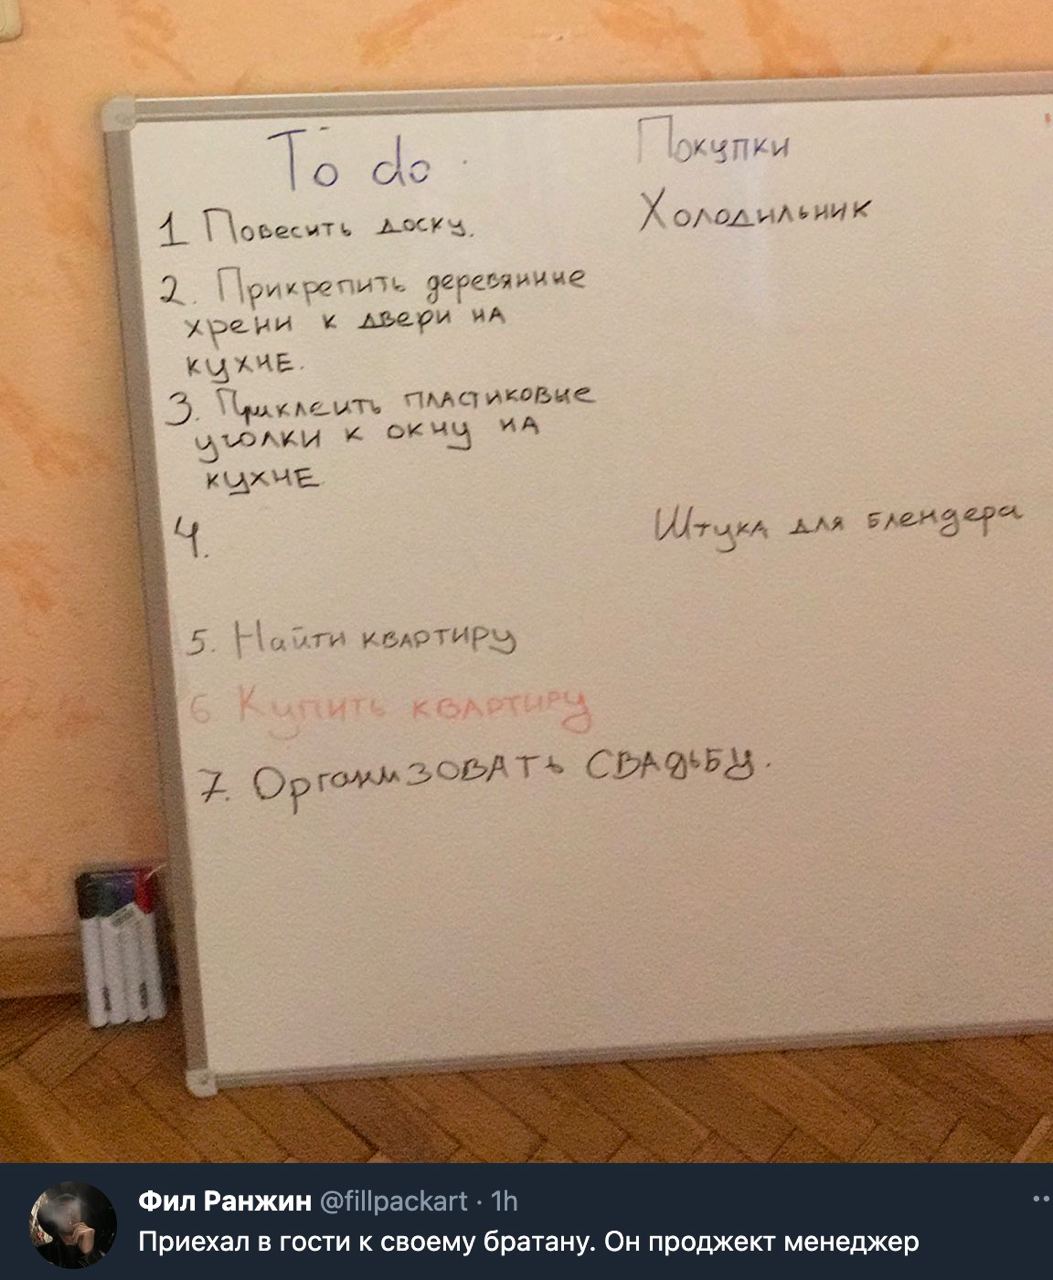 To do
Покупки
1 Повесить доску.
Холодильник
2. Прикрепить деревянные
хрени к двери на
кухне.
3. Приклеить пластиковые
уголки к окну на
кухне
4.
Штука для блендера
5. Найти квартиру
6 Купить квартиру
7. Организовать свадьбу.
Фил Ранжин @fillpackart · 1h
Приехал в гости к своему братану. Он проджект менеджер